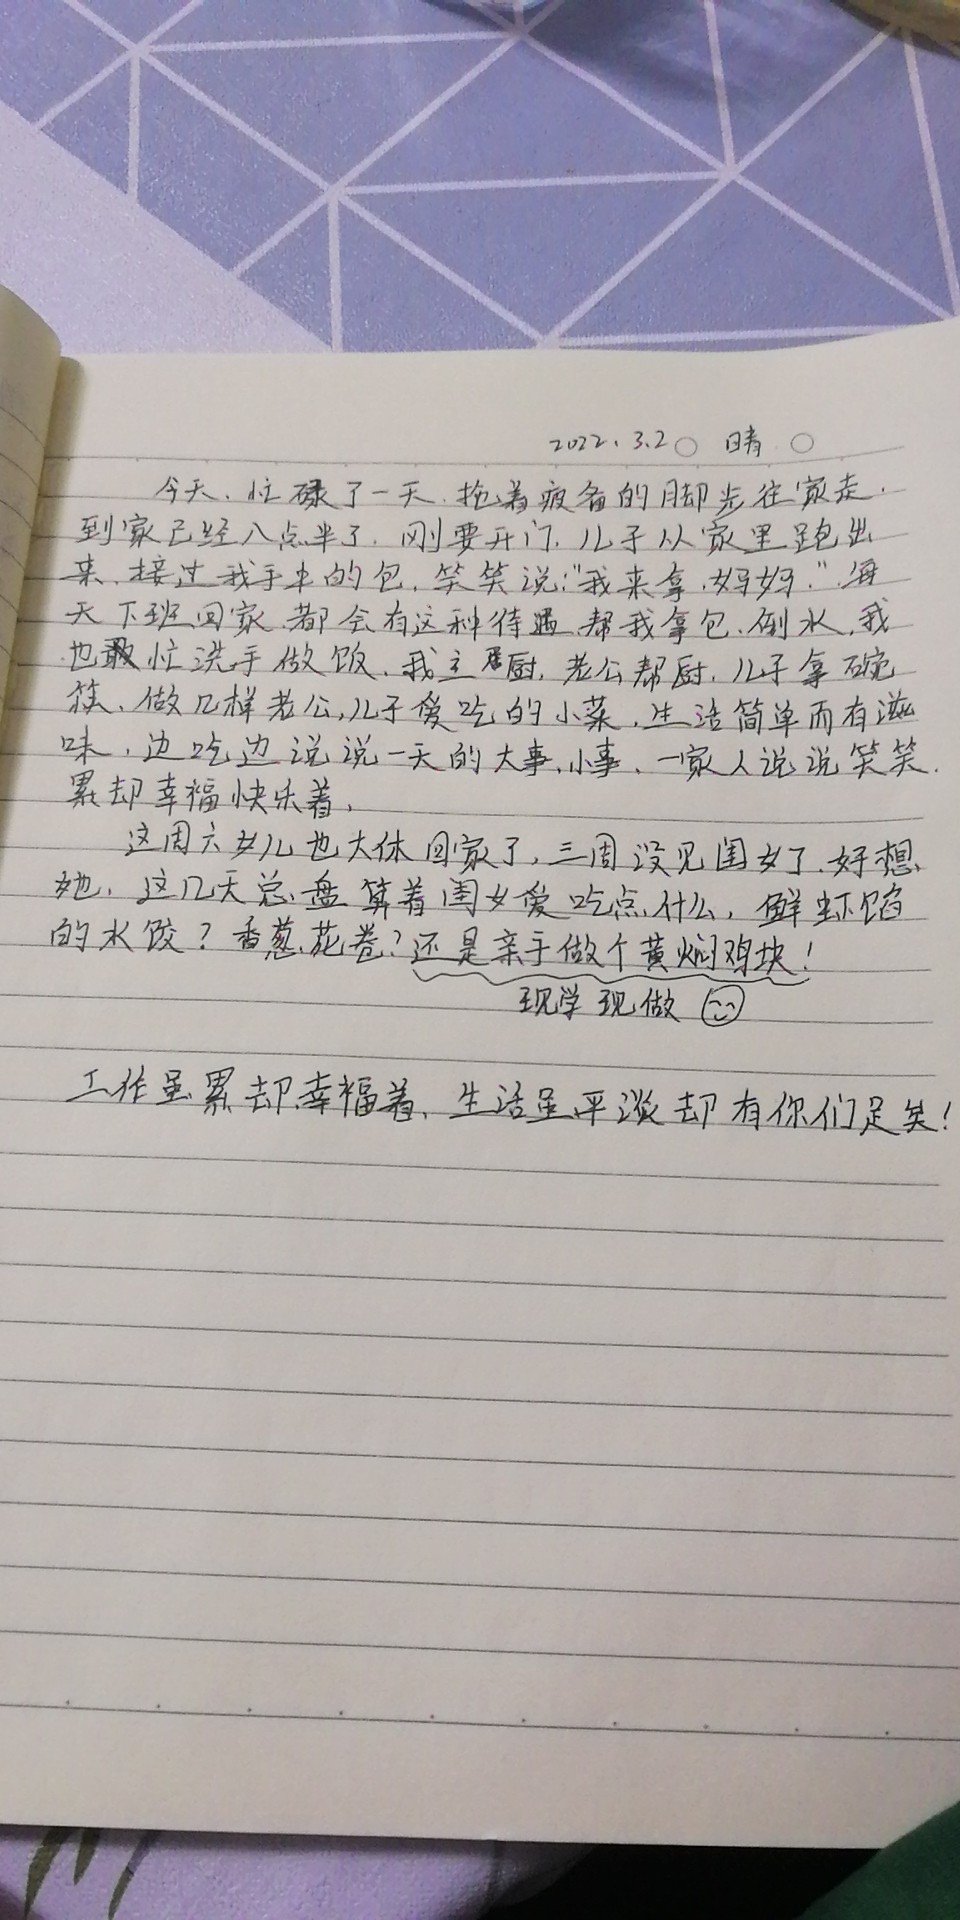 2022.3.2 晴
今天、忙碌了一天.拖着疲备的脚步往家走.
到家已经八点半了.刚要开门.儿子从家里跑出
来.接过我手中的包.笑笑说:“我来拿.妈妈.”.每
天下班回家.都会有这种待遇.帮我拿包、倒水.我
也敢忙洗手做饭、我主厨.老公帮厨.儿子拿碗
筷、做几样老公,儿子爱吃的小菜.生活简单而有滋
味、边吃边说说一天的大事、小事、一家人说说笑笑.
累却幸福快乐着.
这周六女儿也大休回家了,三周没见闺女了.好想
她.这几天总盘算着闺女爱吃点什么,鲜虾馅
的水饺?香葱花卷?还是亲手做个黄焖鸡块!
现学现做
工作虽累却幸福着、生活虽平淡却有你们足矣!